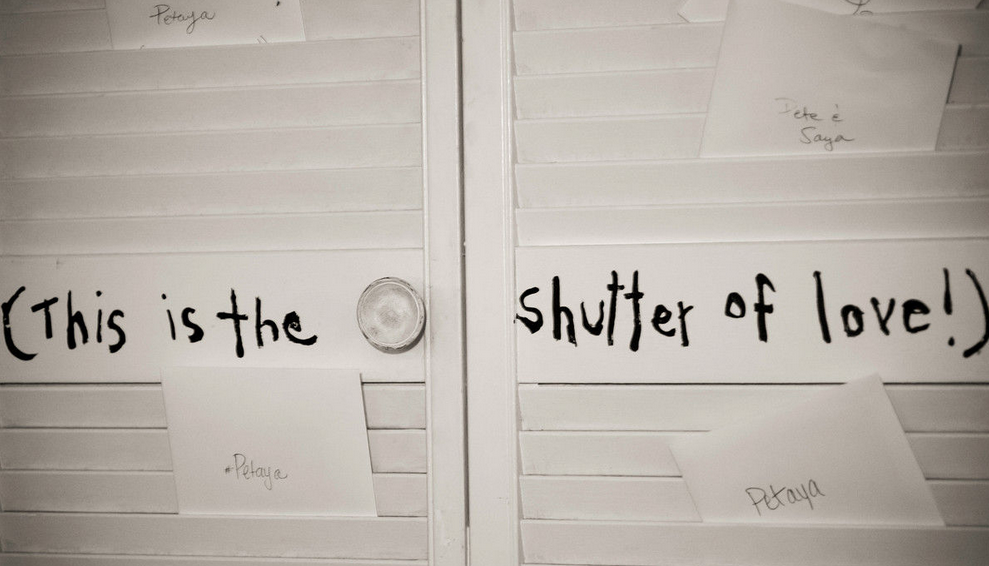 Petaya
Pete &
Saya
(This is the shutter of love!)
#Petaya
Petaya